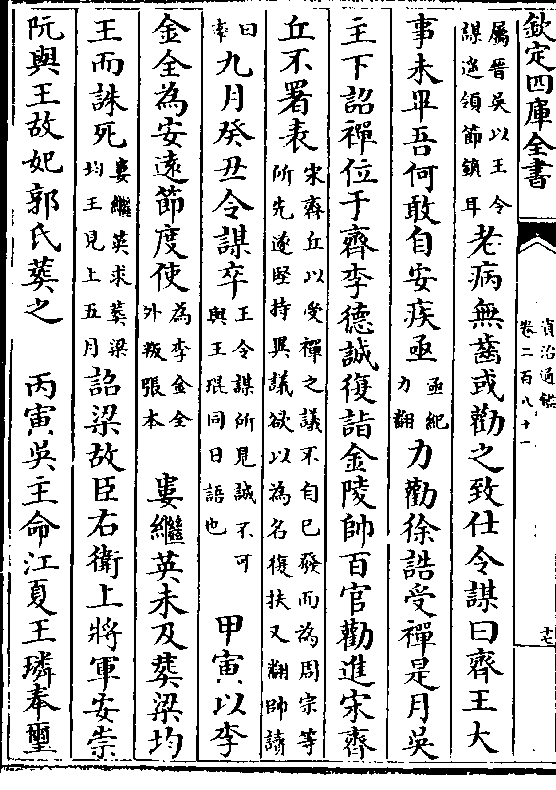 欽定四庫全書
資治通鑑
卷二百八十一
屬晉吳以王令
謀遙領節鎮耳老病無齒或勸之致仕令謀曰齊王大
事未畢吾何敢自安疾亟亟紀
力翻力勸徐誥受禪是月吳
主下詔禪位于齊李德誠復詣金陵帥百官勸進宋齊
丘不署表宋齊丘以受禪之議不自已發而為周宗等
所先遂堅持異議欲以為名復扶又翻帥讀
曰
率九月癸丑令謀卒王令謀所見誠不可
與王琨同日語也甲寅以李
金全為安遠節度使為李金全
外叛張本婁繼英未及葬梁均
王而誅死婁繼英求葬梁
均王見上五月詔梁故臣右衛上將軍安崇
阮與王故妃郭氏葬之丙寅吳主命江夏王璘奉璽